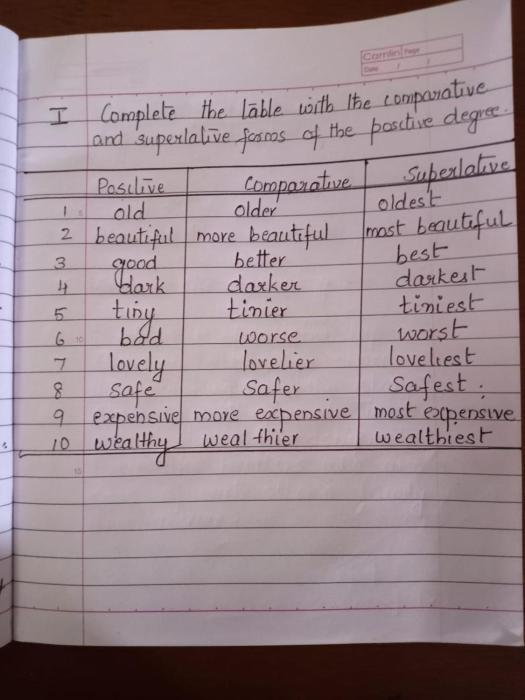 Camlin Page
Date / /
I Complete the table with the comparative
and superlative forms of the positive degree.
Positive Comparative Superlative
1 old older oldest
2 beautiful more beautiful most beautiful
3 good better best
4 dark darker darkest
5 tiny tinier tiniest
6 bad worse worst
7 lovely lovelier loveliest
8 safe Safer Safest.
9 expensive more expensive most expensive
10 wealthy wealthier wealthiest